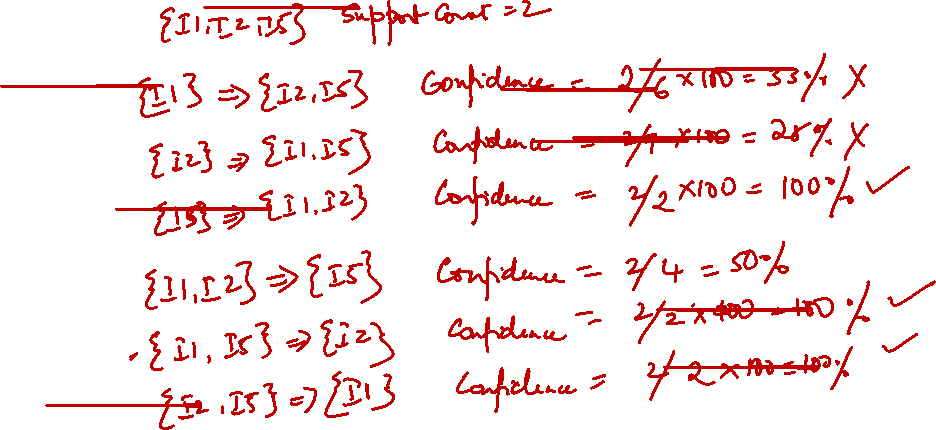 {I1,I2,I5} Support Count = 2
{I1} ⇒ {I2,I5} Confidence = 2/6 × 100 = 33% X
{I2} ⇒ {I1,I5} Confidence = 2/7 × 100 = 28% X
{I5} ⇒ {I1,I2} Confidence = 2/2 × 100 = 100% ✓
{I1,I2} ⇒ {I5} Confidence = 2/4 = 50%
{I1,I5} ⇒ {I2} Confidence = 2/2 × 100 = 100% ✓
{I2,I5} ⇒ {I1} Confidence = 2/2 × 100 = 100% ✓